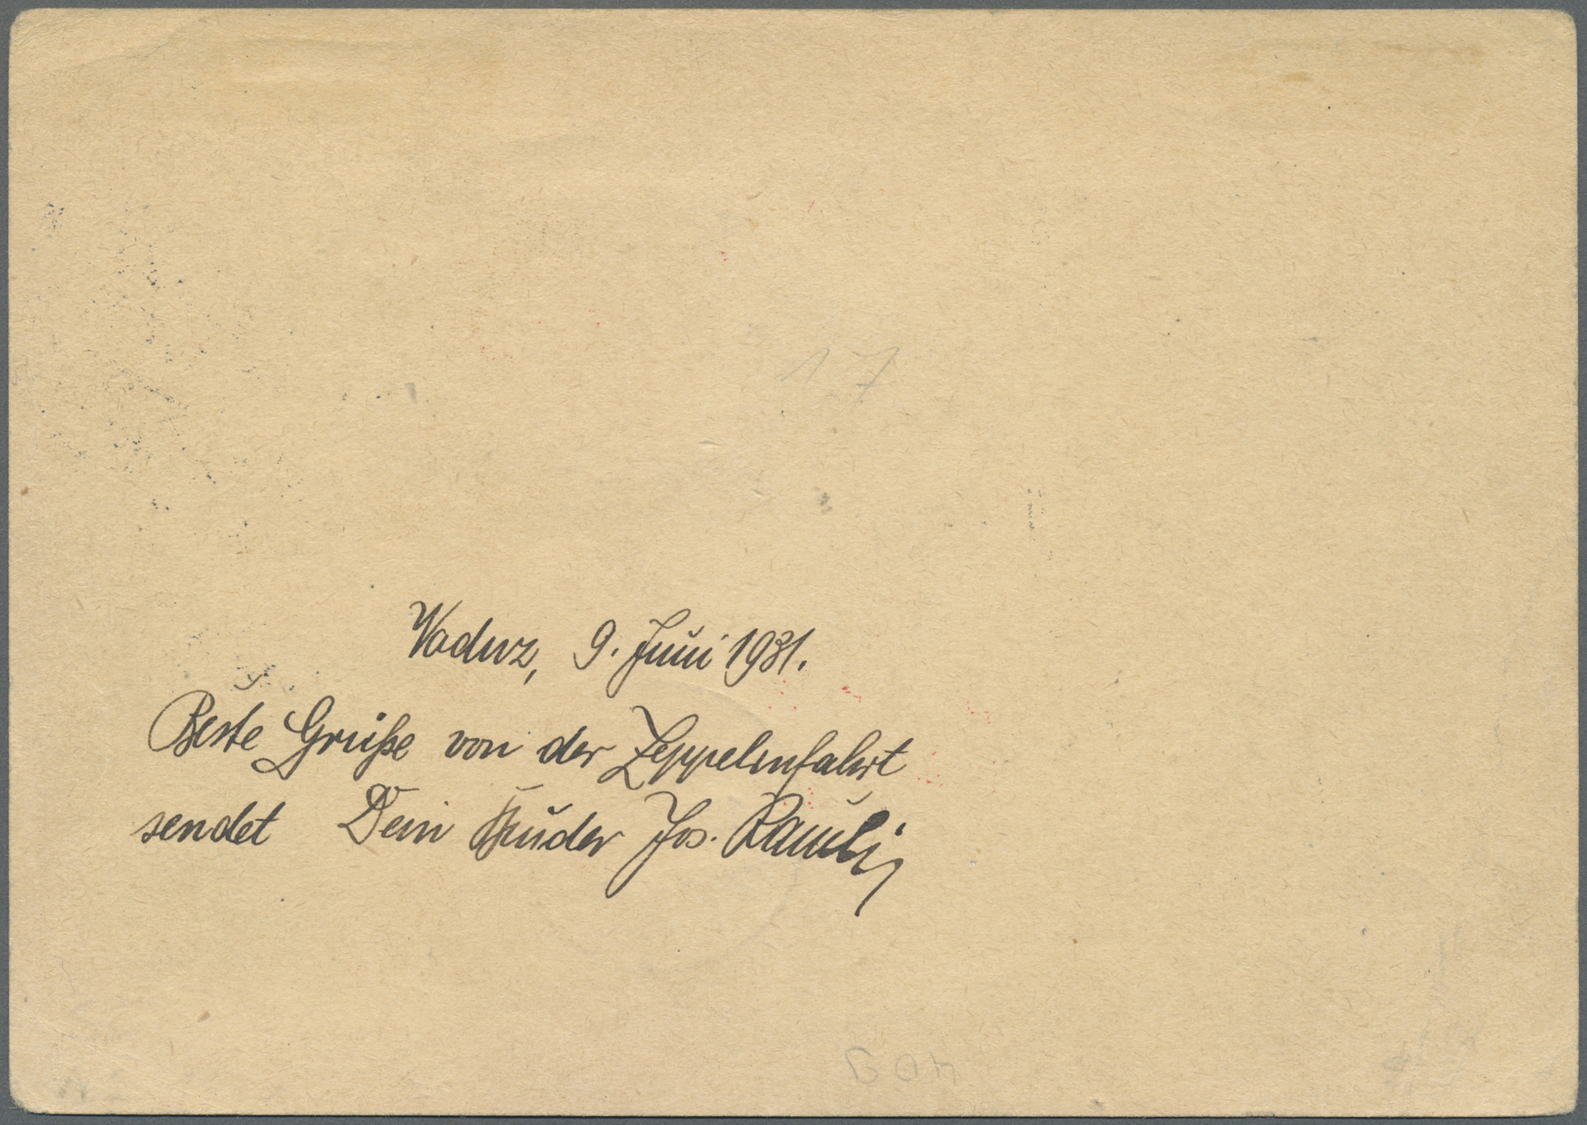 17
Vaduz, 9. Juni 1931.
Beste Grüße von der Zeppelinfahrt
sendet Dein Bruder Jos.